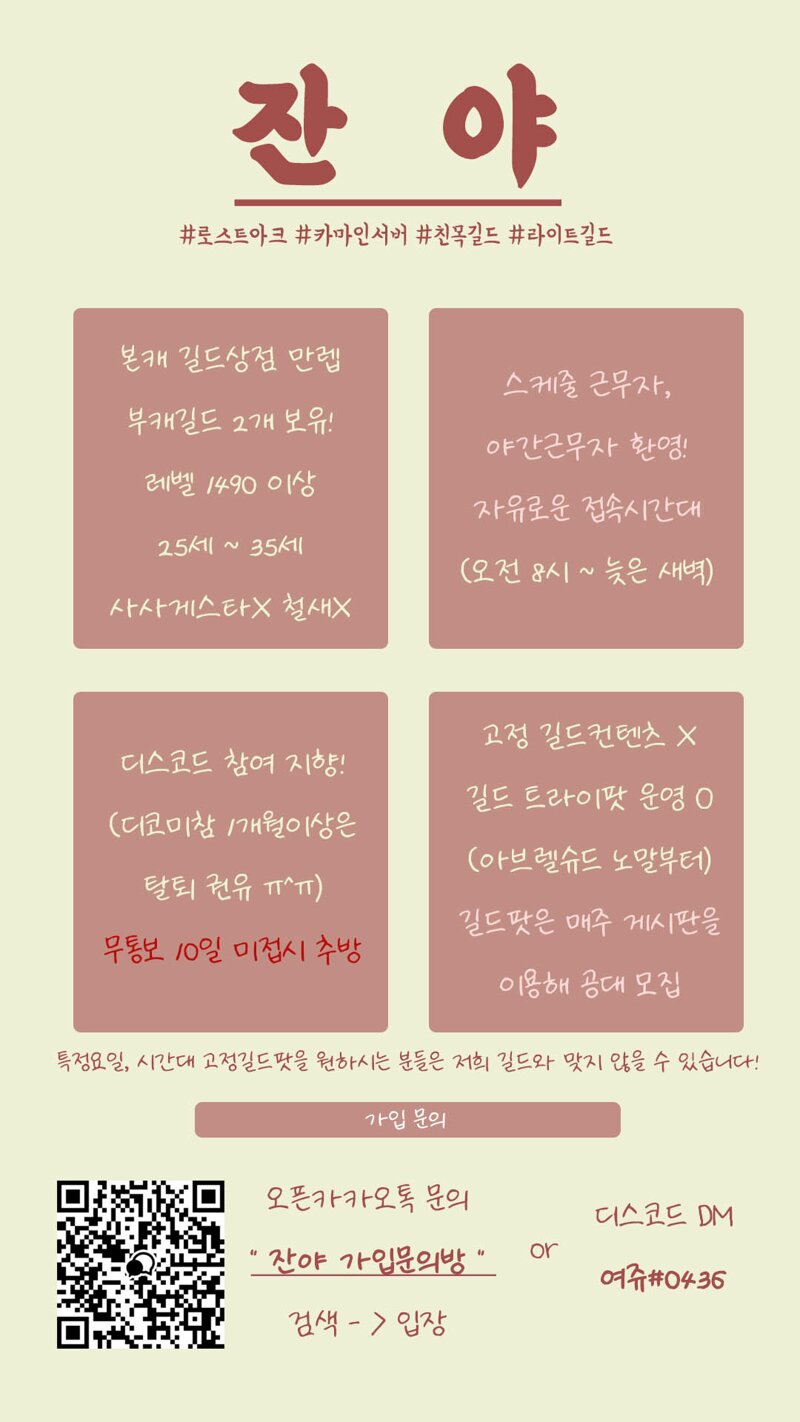 잔 야
#로스트아크 #카마인서버 #친목길드 #라이트길드
본캐 길드상점 만렙
부캐길드 2개 보유!
레벨 1490 이상
25세 ~ 35세
사사게스타X 철새X
스케줄 근무자,
야간근무자 환영!
자유로운 접속시간대
(오전 8시 ~ 늦은 새벽)
디스코드 참여 지향!
(디코미참 1개월이상은
탈퇴 권유 ㅠ^ㅠ)
무통보 10일 미접시 추방
고정 길드컨텐츠 X
길드 트라이팟 운영 O
(아브렐슈드 노말부터)
길드팟은 매주 게시판을
이용해 공대 모집
특정요일, 시간대 고정길드팟을 원하시는 분들은 저희 길드와 맞지 않을 수 있습니다!
가입 문의
오픈카카오톡 문의
" 잔야 가입문의방 "
검색 - > 입장
or
디스코드 DM
여쥬#0436